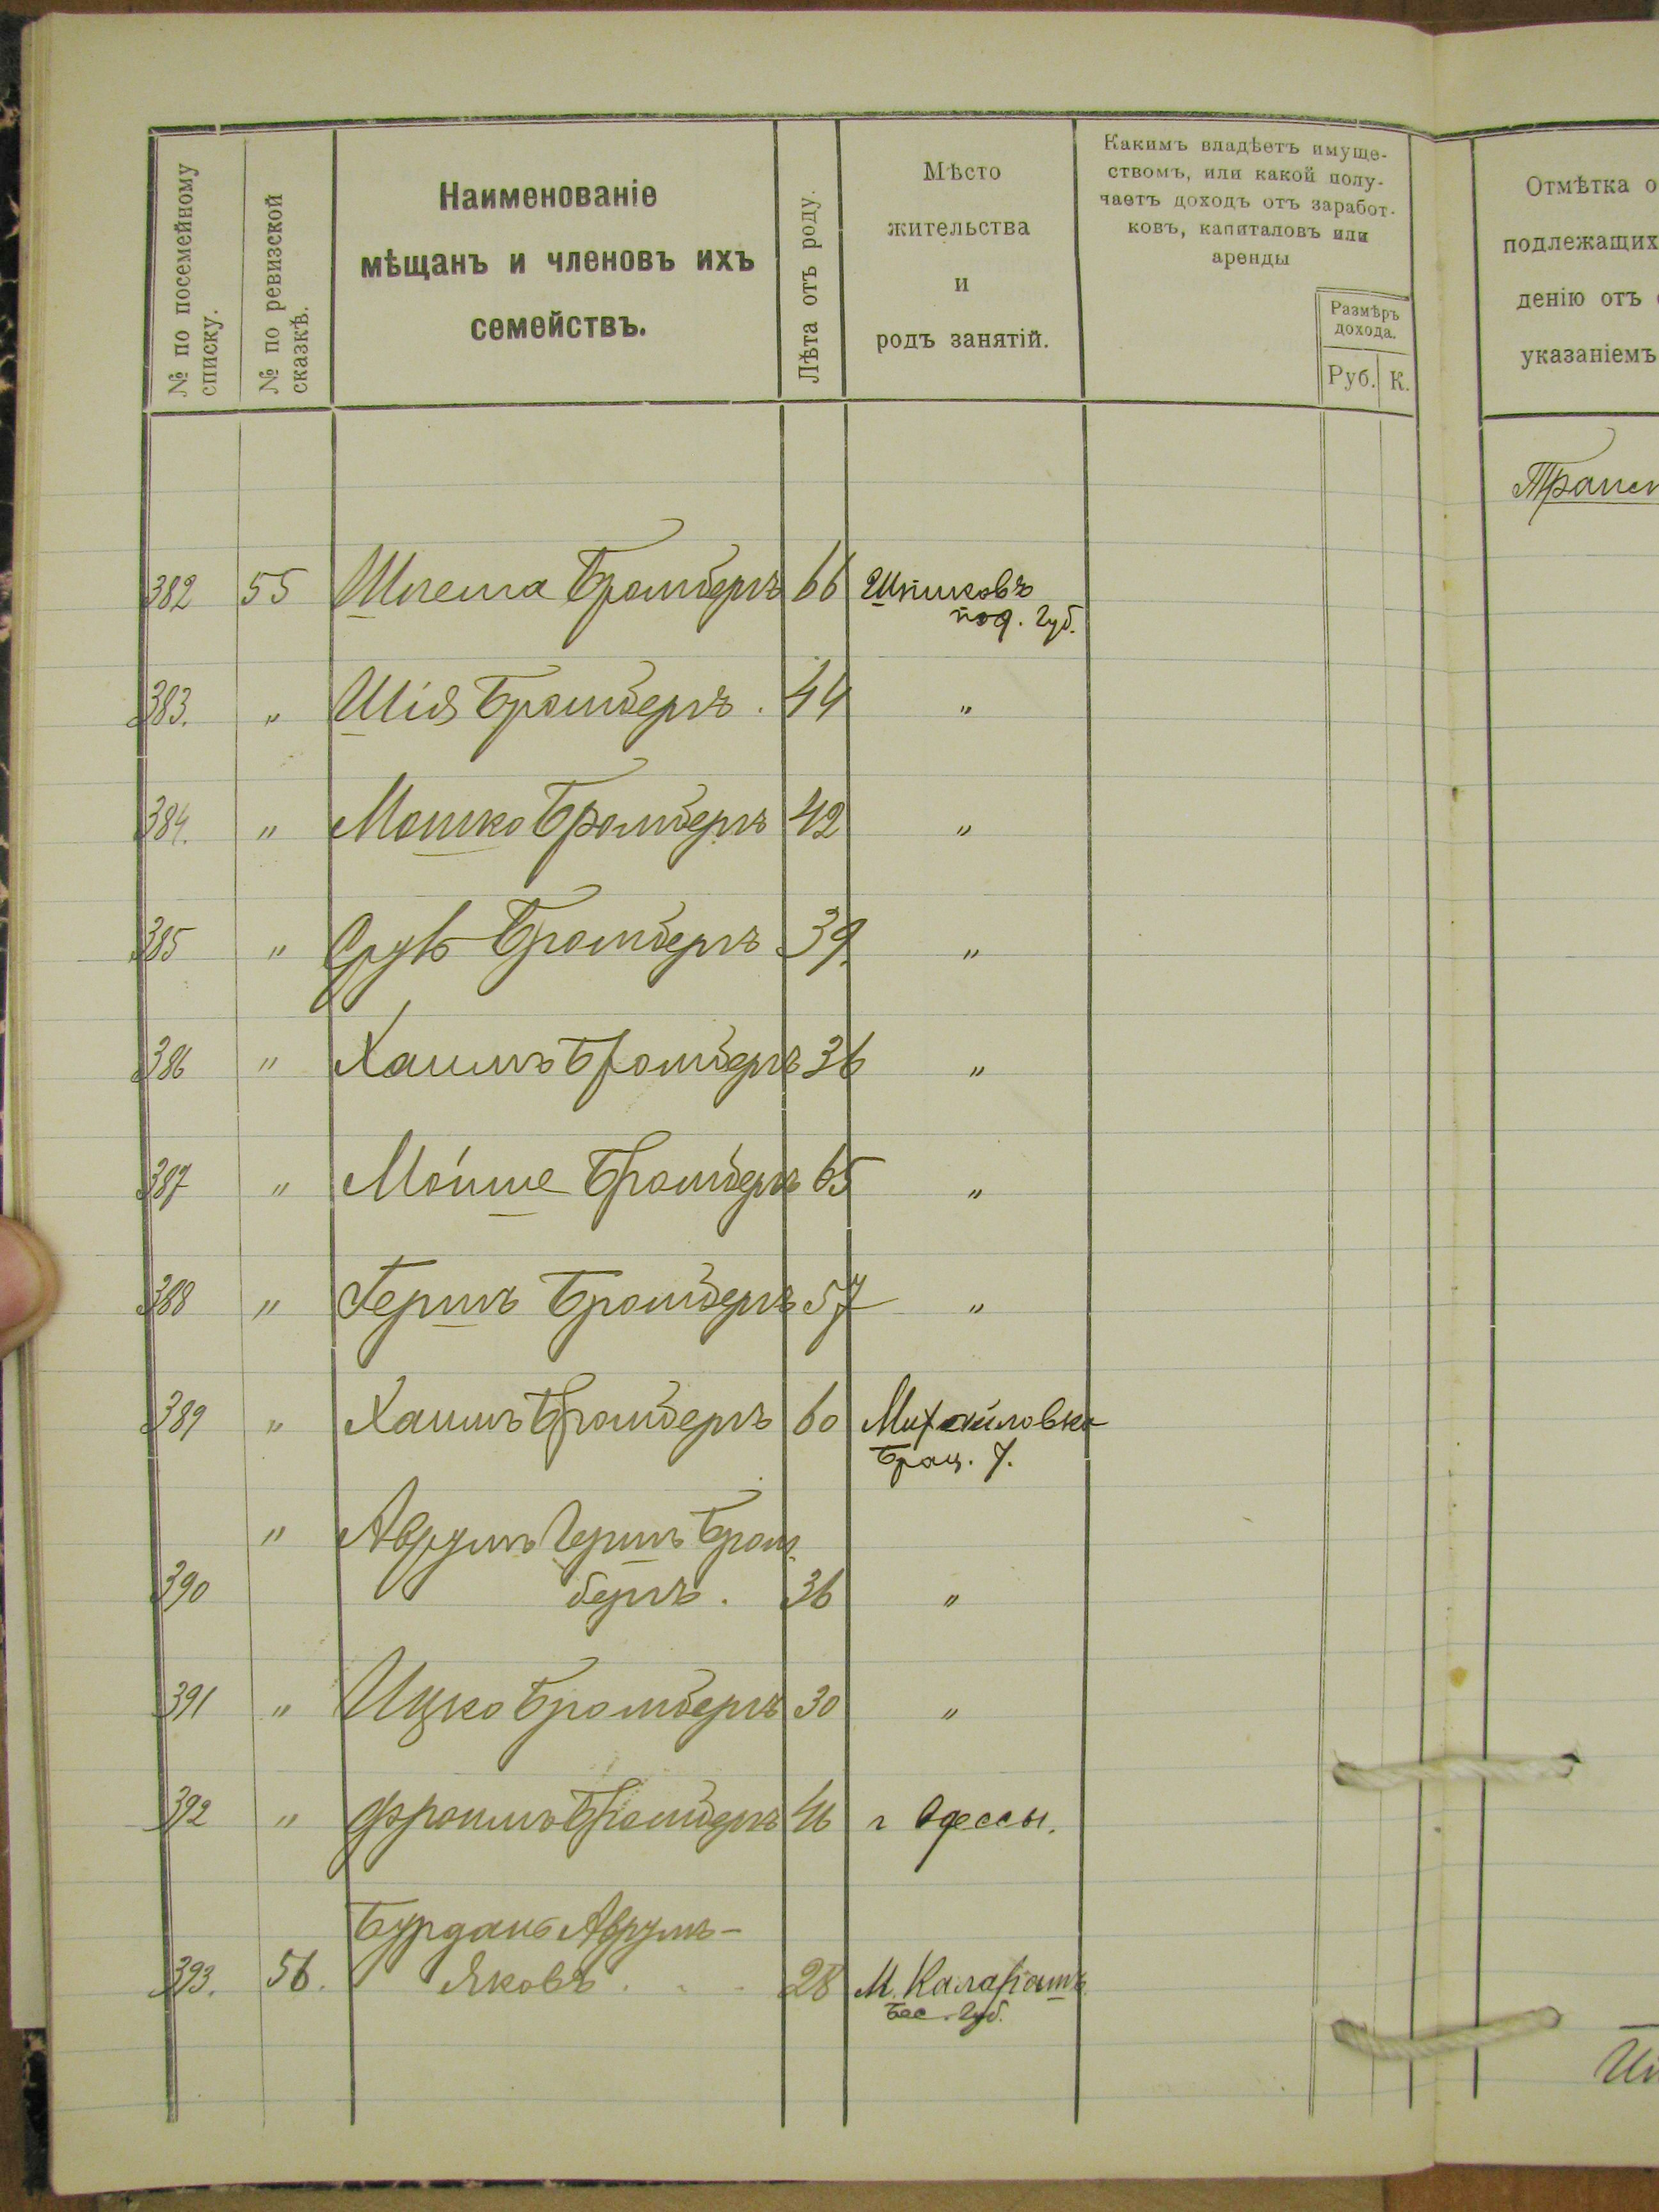 № по посемейному
списку.
№ по ревизской
сказкѣ.
Наименованіе
мѣщанъ и членовъ ихъ
семействъ.
Лѣта отъ роду.
Мѣсто
жительства
и
родъ занятій.
Какимъ владѣетъ имуще-
ствомъ, или какой полу-
чаетъ доходъ отъ заработ-
ковъ, капиталовъ или
аренды
Размѣръ
дохода.
Руб. К.
Отмѣтка о
подлежащих
денію отъ
указаніемъ
382 55 Бромбергъ 66 Шпиковъ
под. губ.
383. " Шія Бромбергъ. 44 "
384. " Мошко Бромбергъ 42 "
385 " Сруль Бромбергъ 39. "
386 " Хаимъ Бромбергъ 36 "
387 " Мойше Бромбергъ 65 "
388 " Гершъ Бромбергъ 57 "
389 " Хаимъ Бромбергъ 60 Михайловка
Брац. у.
" Аврумъ Гершъ Бром
390 бергъ. 36 "
391 " Ицко Бромбергъ 30 "
392 " Фроимъ Бромбергъ 46 г Одессы.
Бурданъ Аврумъ-
393. 56. Яковъ . . . 28 М. Каларашъ
Бес. губ.